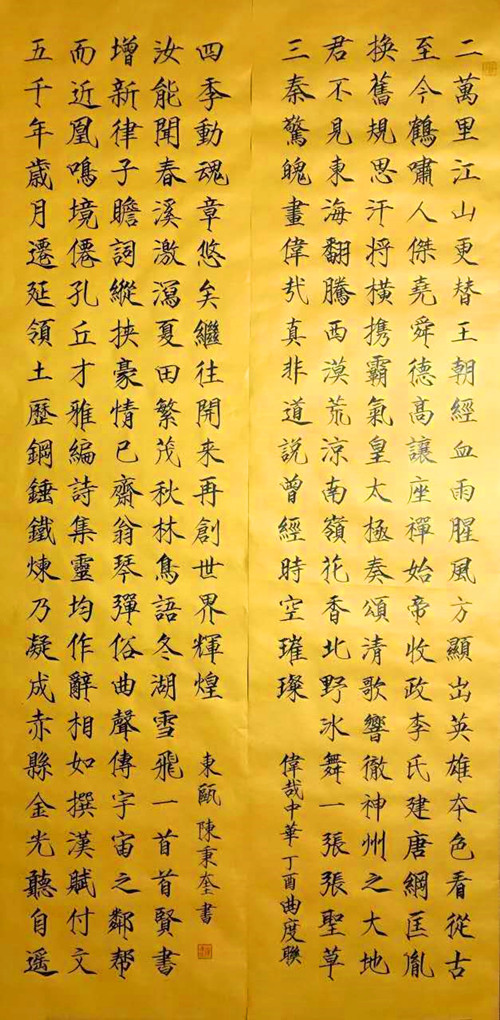 二萬里江山更替王朝經血雨腥風方顯出英雄本色看從古
至今鶴嘯人傑堯舜德高讓座禪始帝收政李氏建唐綱匡胤
換舊規思汗將橫携霸氣皇太極奏頌清歌響徹神州之大地
君不見東海翻騰西漠荒涼南嶺花香北野冰舞一張張聖草
三秦驚魄畫偉哉真非道說曾經時空璀璨
偉哉中華丁酉曲度聯
五千年歲月遷延領土歷鋼錘鐵煉乃凝成赤縣金光聽自遥
而近凰鳴境僊孔丘才雅編詩集靈均作辭相如撰漢賦付文
增新律子瞻詞縱挾豪情已齋翁琴彈俗曲聲傳宇宙之鄰幫
汝能聞春溪激瀉夏田繁茂秋林鳥語冬湖雪飛一首首賢書
四季動魂章悠矣繼往開來再創世界輝煌
東甌陳秉奎書